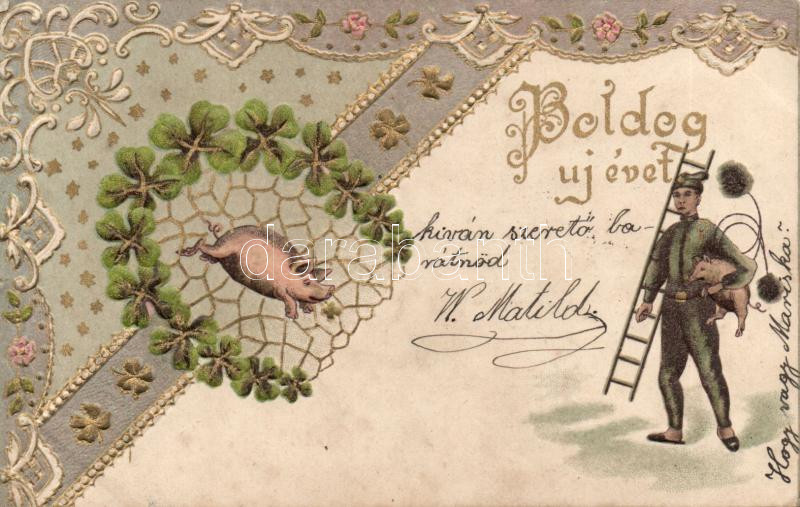 Boldog
uj évet
kiván szerető ba-
rátnőd
W. Matild.
Hogy vagy Mariska?
darabanth